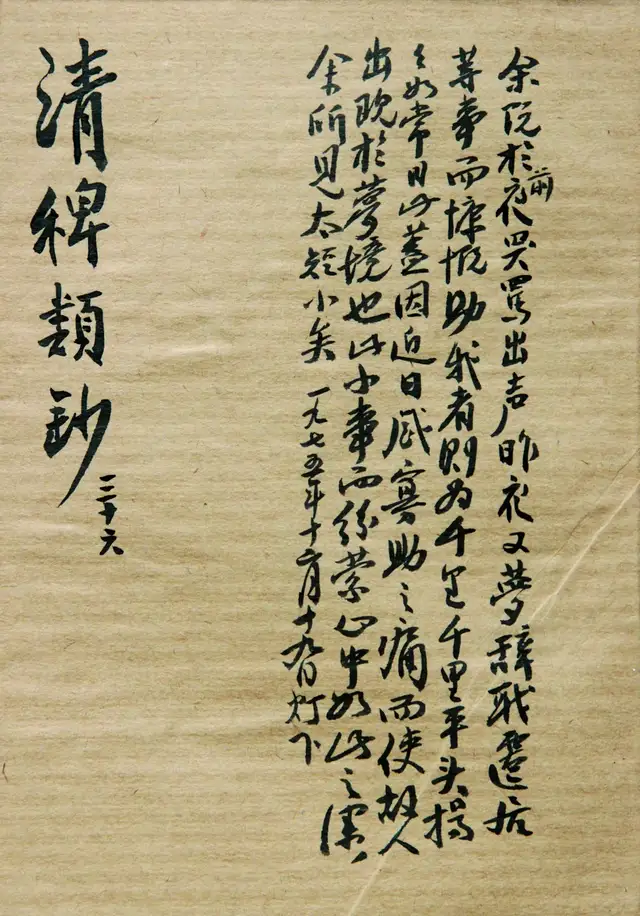 余既於前夜哭罵出声昨夜又夢辞职遷居
等事而慷慨助我者则为千里千里平头揚
々如常日此蓋因近日感寡助之痛而使故人
出现於夢境也此小事而紛縈心中如此之深
余所见太短小矣 一九七五年十二月十九日灯下
清稗類鈔
三十六